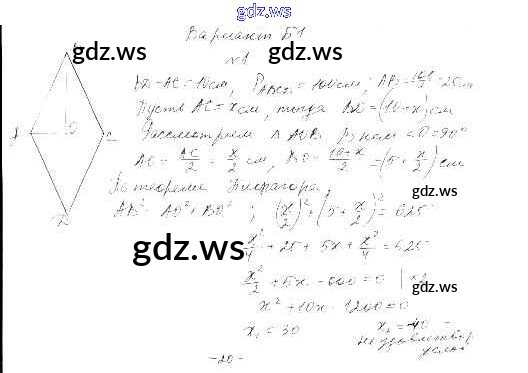 gdz.ws
Вариант Б1
gdz.ws gdz.ws
№1
BD - AC = 10 см, P ABCD = 100 см, AB = 100/4 = 25 см
Пусть AC = x см, тогда BD = (10 + x) см
Рассмотрим Δ AOB. В нем ∠O = 90°
AO = AC/2 = x/2 см, BO = (10+x)/2 = (5 + x/2) см
По теореме Пифагора,
gdz.ws
AB² = AO² + BO² ; (x/2)² + (5 + x/2)² = 625
gdz.ws
x²/4 + 25 + 5x + x²/4 = 625
x²/2 + 5x - 600 = 0 | ×2
gdz.ws
x² + 10x - 1200 = 0
x₁ = 30 x₂ = -40 -
не удовлетвор
услов
-20-
A
O